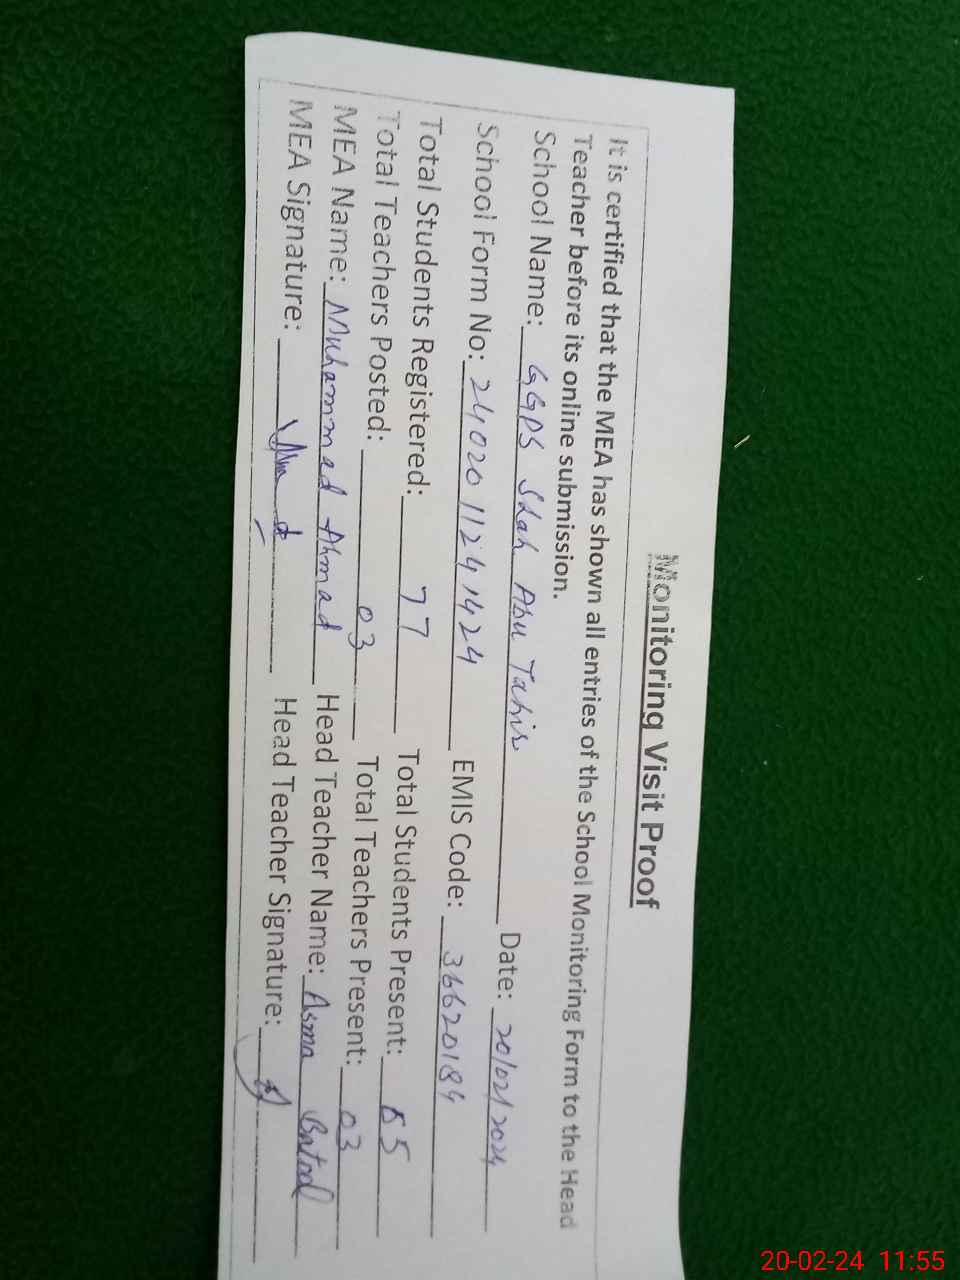 Monitoring Visit Proof
It is certified that the MEA has shown all entries of the School Monitoring Form to the Head
Teacher before its online submission.
School Name: GGPS Shah Abu Tahir Date: 20/02/2024
School Form No: 2402011241424 EMIS Code: 36620184
Total Students Registered: 77 Total Students Present: 65
Total Teachers Posted: 03 Total Teachers Present: 03
MEA Name: Muhammad Ahmad Head Teacher Name: Asma Batool
MEA Signature: Head Teacher Signature:
20-02-24 11:55